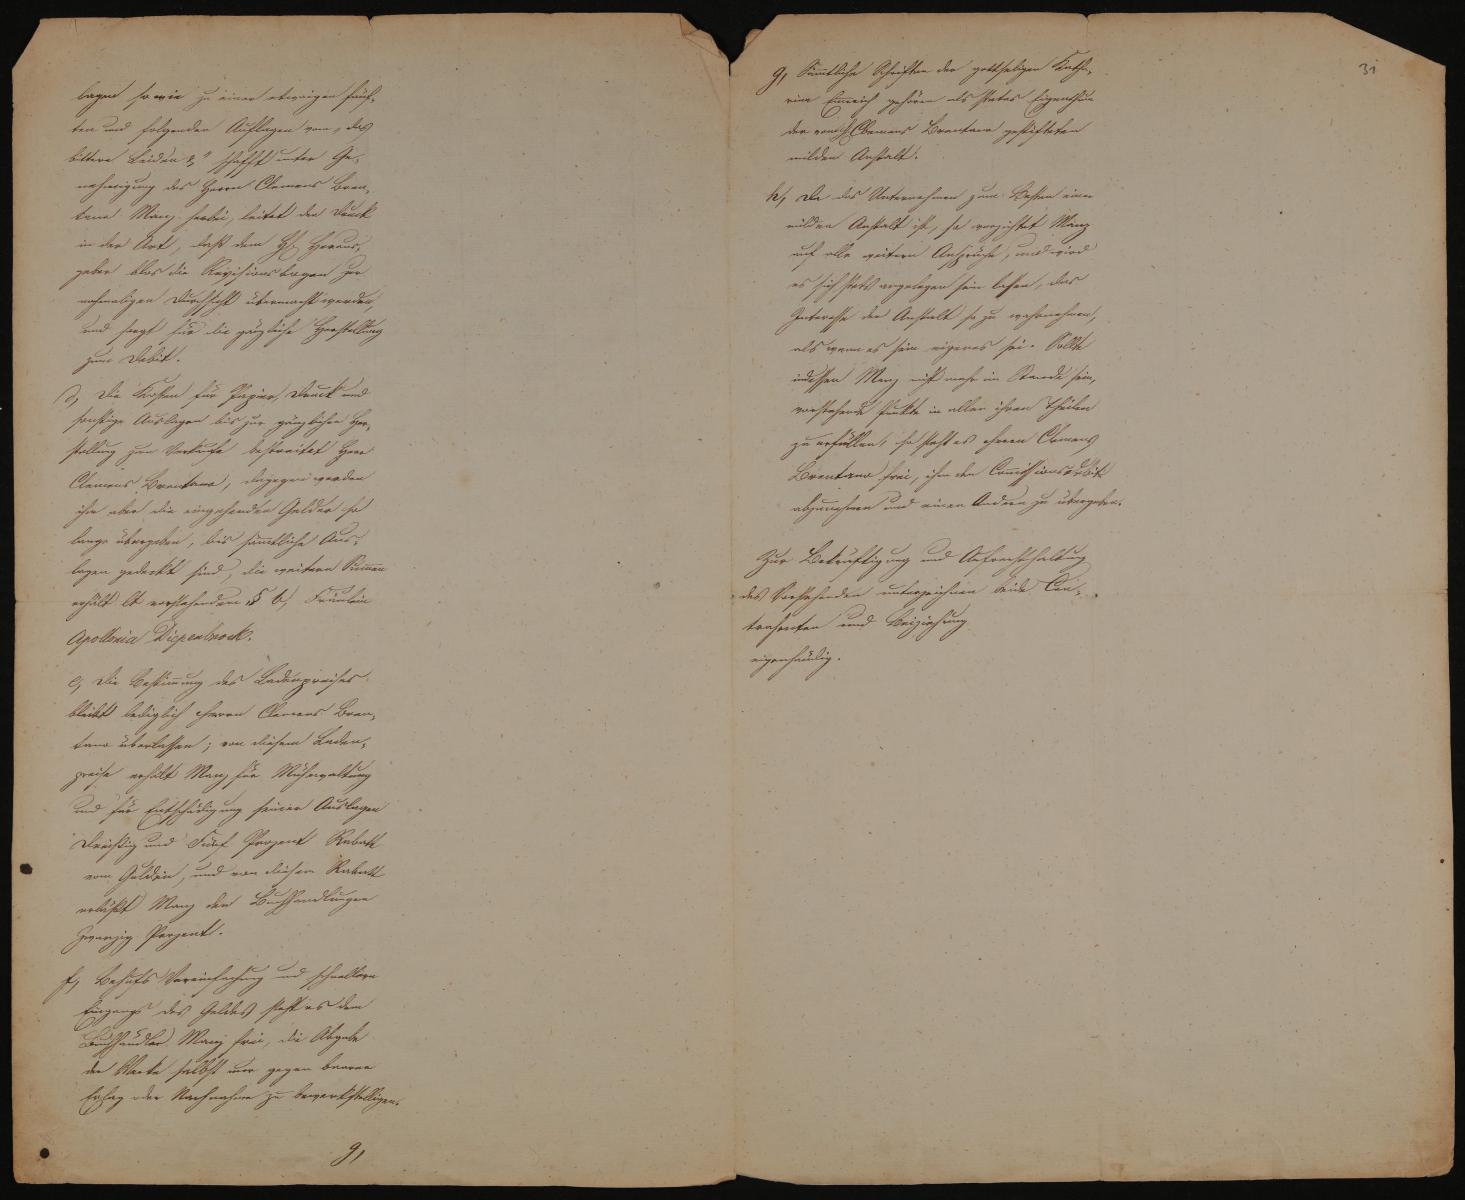 lagen sowie zu einer etwaigen fünf-
ten und folgenden Auflagen von „das
bittere Leiden &" schafft unter Ge-
nehmigung des Herrn Clemens Bren-
tano Manz herbei, leitet den Druck
in der Art, daß dem H. Heraus-
geber blos die Revisionsbogen zur
nochmaligen Durchsicht übermacht werden
und sorgt für die gänzliche Herstellung
zum Debit.
d, Die Kosten für Papier, Druck und
sonstige Auslagen bis zur gänzlichen Her-
stellung zum Verkaufe bestreitet Herr
Clemens Brentano, dagegen werden
ihm aber die eingehenden Gelder so
lange übergeben, bis sämtliche Aus-
lagen gedeckt sind, die weitern Summen
erhält lt vorstehenden § b, Fräulein
Apollonia Diepenbrock.
e, Die Bestimmung des Ladenpreises
bleibt lediglich Herrn Clemens Bren-
tano überlassen; von diesem Laden-
preise erhält Manz für Mühewaltung
und für Entschädigung seiner Auslagen
Dreißig und Fünf Prozent Rabatt
vom Gulden, und von diesem Rabatt
erläßt Manz den Buchhandlungen
Zwanzig Prozent.
f, Behufs Vereinfachung und schnellern
Eingangs des Geldes steht es dem
Buchhändler Manz frei, die Abgabe
der Werke selbst nur gegen baaren
Erlag oder Nachnahme zu bewerkstelligen.
g,
31
g, Sämtliche Schriften der gottseligen Katha-
rina Emmerich gehören als stetes Eigenthum
der von H Clemens Brentano gestifteten
milden Anstalt.
h, Da das Unternehmen zum Besten einer
milden Anstalt ist, so verzichtet Manz
auf alle weitern Ansprüche, und wird
es sich stets angelegen sein lassen, das
Interesse der Anstalt so zu wahrnehmen,
als wenn es sein eigenes sei. Sollte
indessen Manz nicht mehr im Stande sein,
vorstehende Punkte in allen ihren Theilen
zu erfüllen, so steht es Herrn Clemens
Brentano frei, ihm den Commissionsdebit
abzunehmen und einem Andern zu übergeben.
Zur Bekräftigung und Aufrechthaltung
des Vorstehenden unterzeichnen beide Con-
trahenten und Beiziehung
eigenhändig.